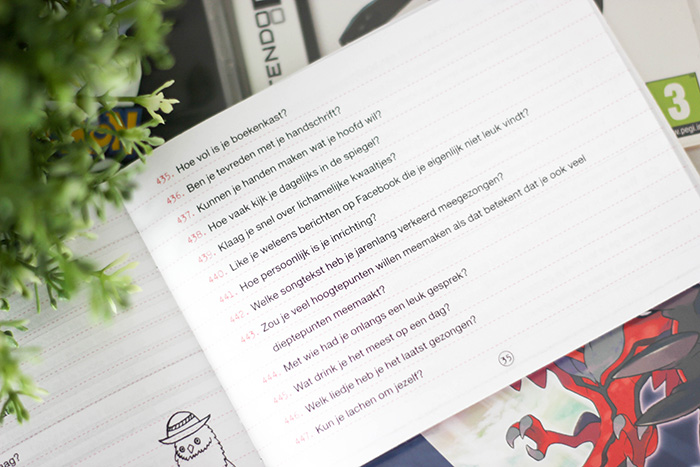 NINTENDO
3
www.pegi.in
435. Hoe vol is je boekenkast?
436. Ben je tevreden met je handschrift?
437. Kunnen je handen maken wat je hoofd wil?
438. Hoe vaak kijk je dagelijks in de spiegel?
439. Klaag je snel over lichamelijke kwaaltjes?
440. Like je weleens berichten op Facebook die je eigenlijk niet leuk vindt?
441. Hoe persoonlijk is je inrichting?
442. Welke songtekst heb je jarenlang verkeerd meegezongen?
443. Zou je veel hoogtepunten willen meemaken als dat betekent dat je ook veel
dieptepunten meemaakt?
444. Met wie had je onlangs een leuk gesprek?
445. Wat drink je het meest op een dag?
446. Welk liedje heb je het laatst gezongen?
447. Kun je lachen om jezelf?
35